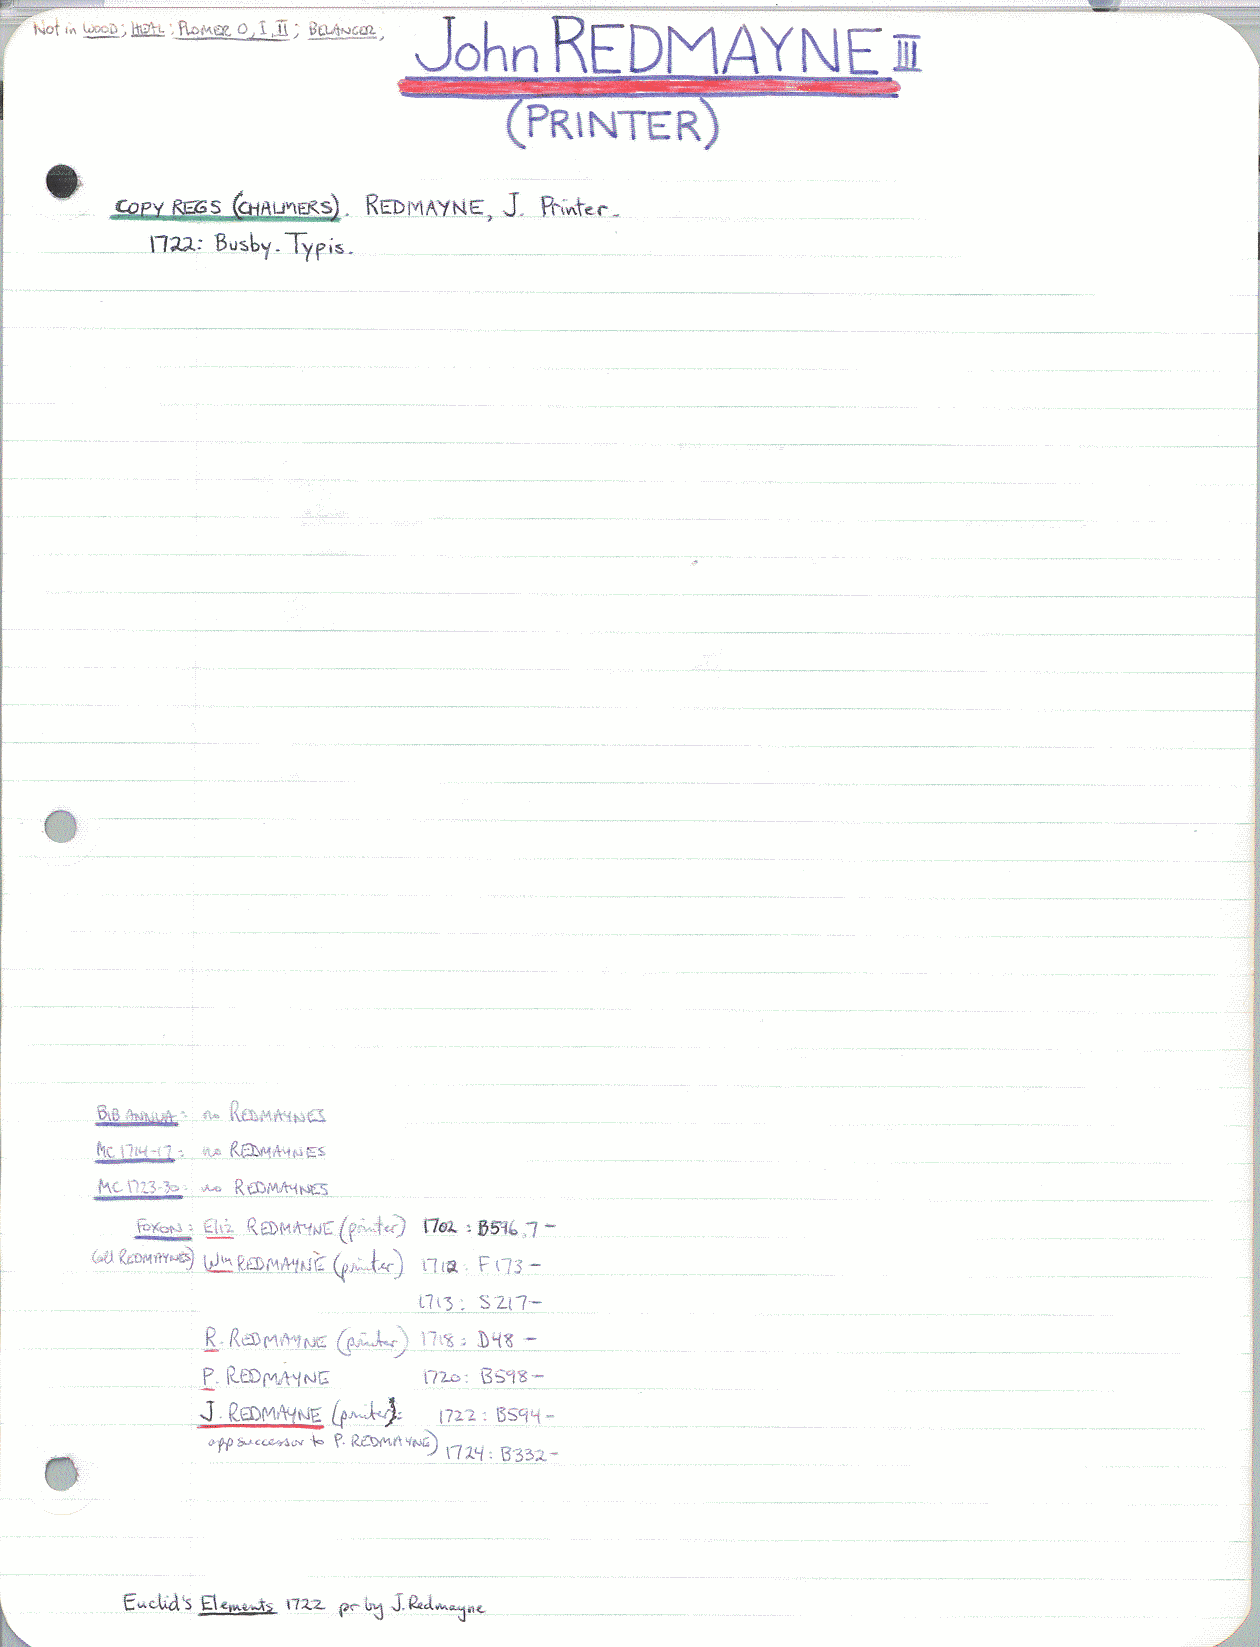 Not in WOOD; HODL; PLOMER O, I, II; BELANGER;
John REDMAYNE III
(PRINTER)
COPY REGS (CHALMERS). REDMAYNE, J. Printer.
1722: Busby. Typis.
BIB ANNUA: no REDMAYNES
MC 1714-17: no REDMAYNES
MC 1723-30: no REDMAYNES
FOXON: Eliz REDMAYNE (printer) 1702: B596,7-
(all REDMAYNES) Wm REDMAYNE (printer) 1712: F173-
1713: S217-
R. REDMAYNE (printer) 1718: D48 -
P. REDMAYNE 1720: B598-
J. REDMAYNE (printer): 1722: B594-
app successor to P. REDMAYNE) 1724: B332-
Euclid's Elements 1722 pr by J. Redmayne